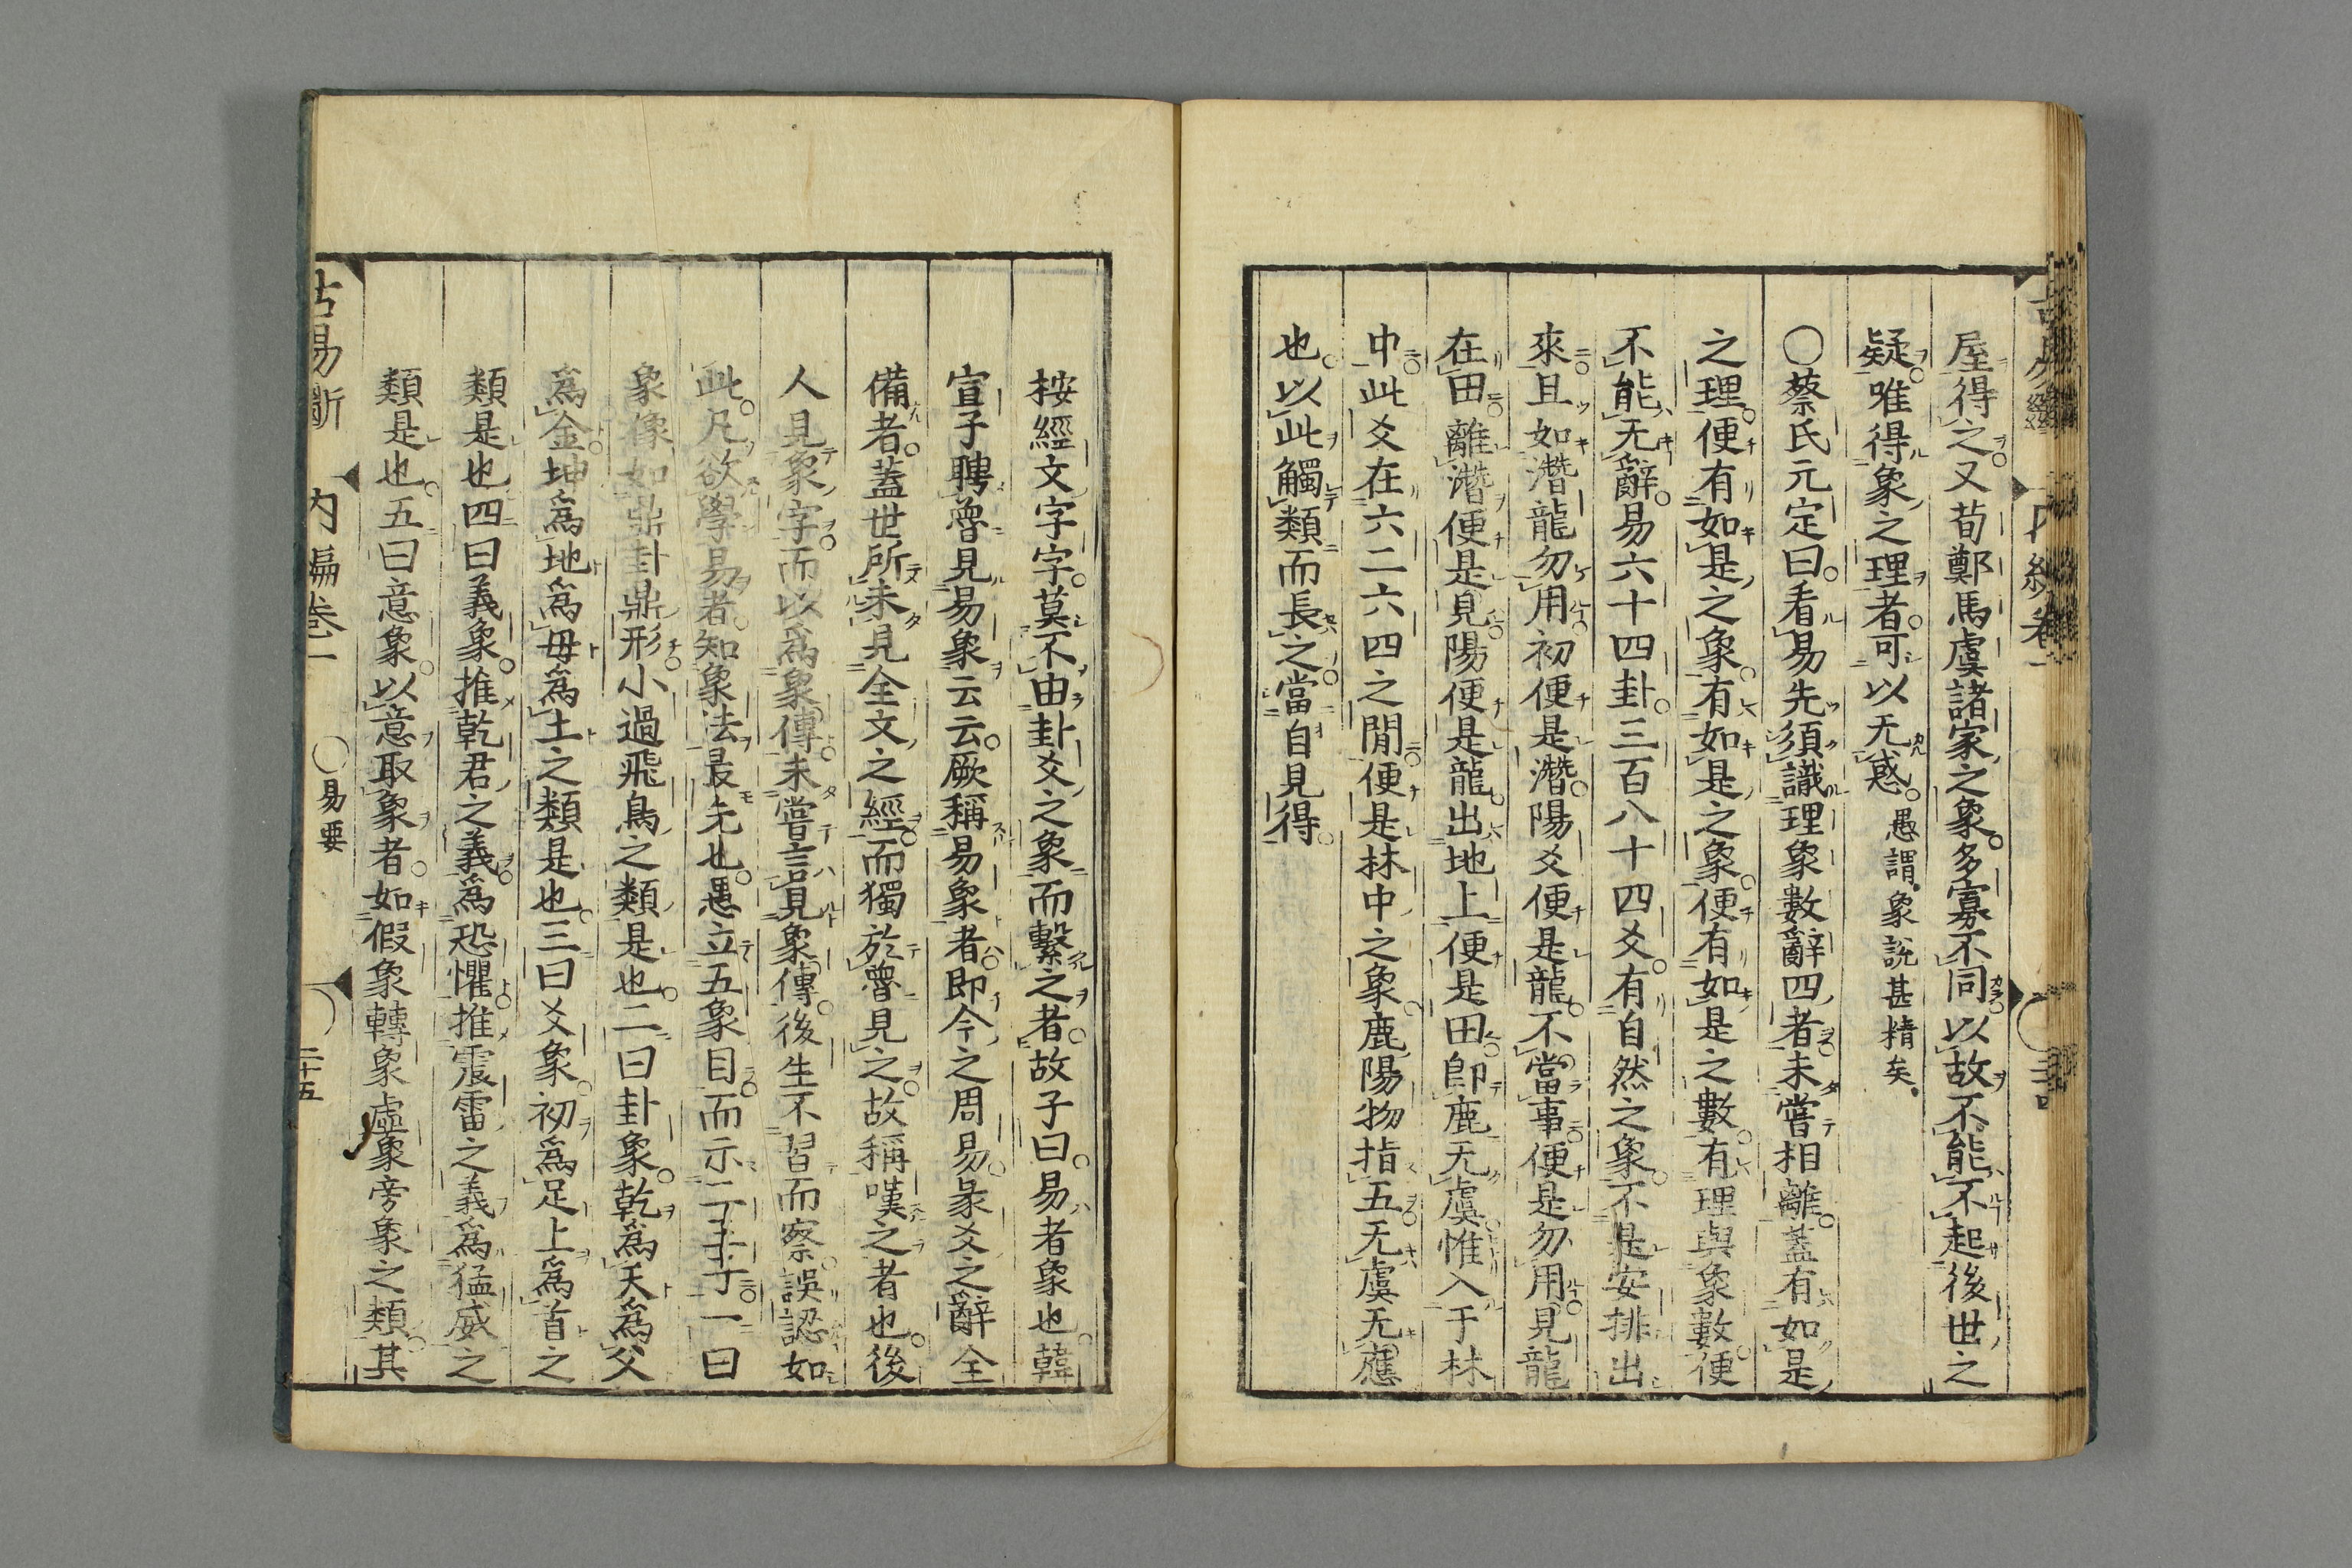 屋得之又荀鄭馬虞諸家之象多寡不同以故不能不起後世之
疑唯得象之理者可以无惑愚謂象説甚精矣
〇蔡氏元定曰看易先須識理象數辭四者未嘗相離蓋有如是
之理便有如是之象有如是之象便有如是之數有理與象數便
不能无辭易六十四卦三百八十四爻有自然之象不是安排出
來且如潛龍勿用初便是潛陽爻便是龍不當事便是勿用見龍
在田離潛便是見陽便是龍出地上便是田即鹿无虞惟入于林
中此爻在六二六四之間便是林中之象鹿陽物指五无虞无應
也以此觸類而長之當自見得
按經文字字莫不由卦爻之象而繫之者故子曰易者象也韓
宣子聘魯見易象云云厥稱易象者即今之周易彖爻之辭全
備者蓋世所未見全文之經而獨於魯見之故稱嘆之者也後
人見象字而以爲象傳未嘗言見象傳後生不習而察誤認如
此凡欲學易者知象法最先也愚立五象目而示二三子一曰
象像如鼎卦鼎形小過飛鳥之類是也二曰卦象乾爲天爲父
爲金坤爲地爲母爲土之類是也三曰爻象初爲足上爲首之
類是也四曰義象推乾君之義爲恐懼推震雷之義爲猛威之
類是也五曰意象以意取象者如假象轉象虛象旁象之類其
古易斷 内編卷一 〇易要 二十五